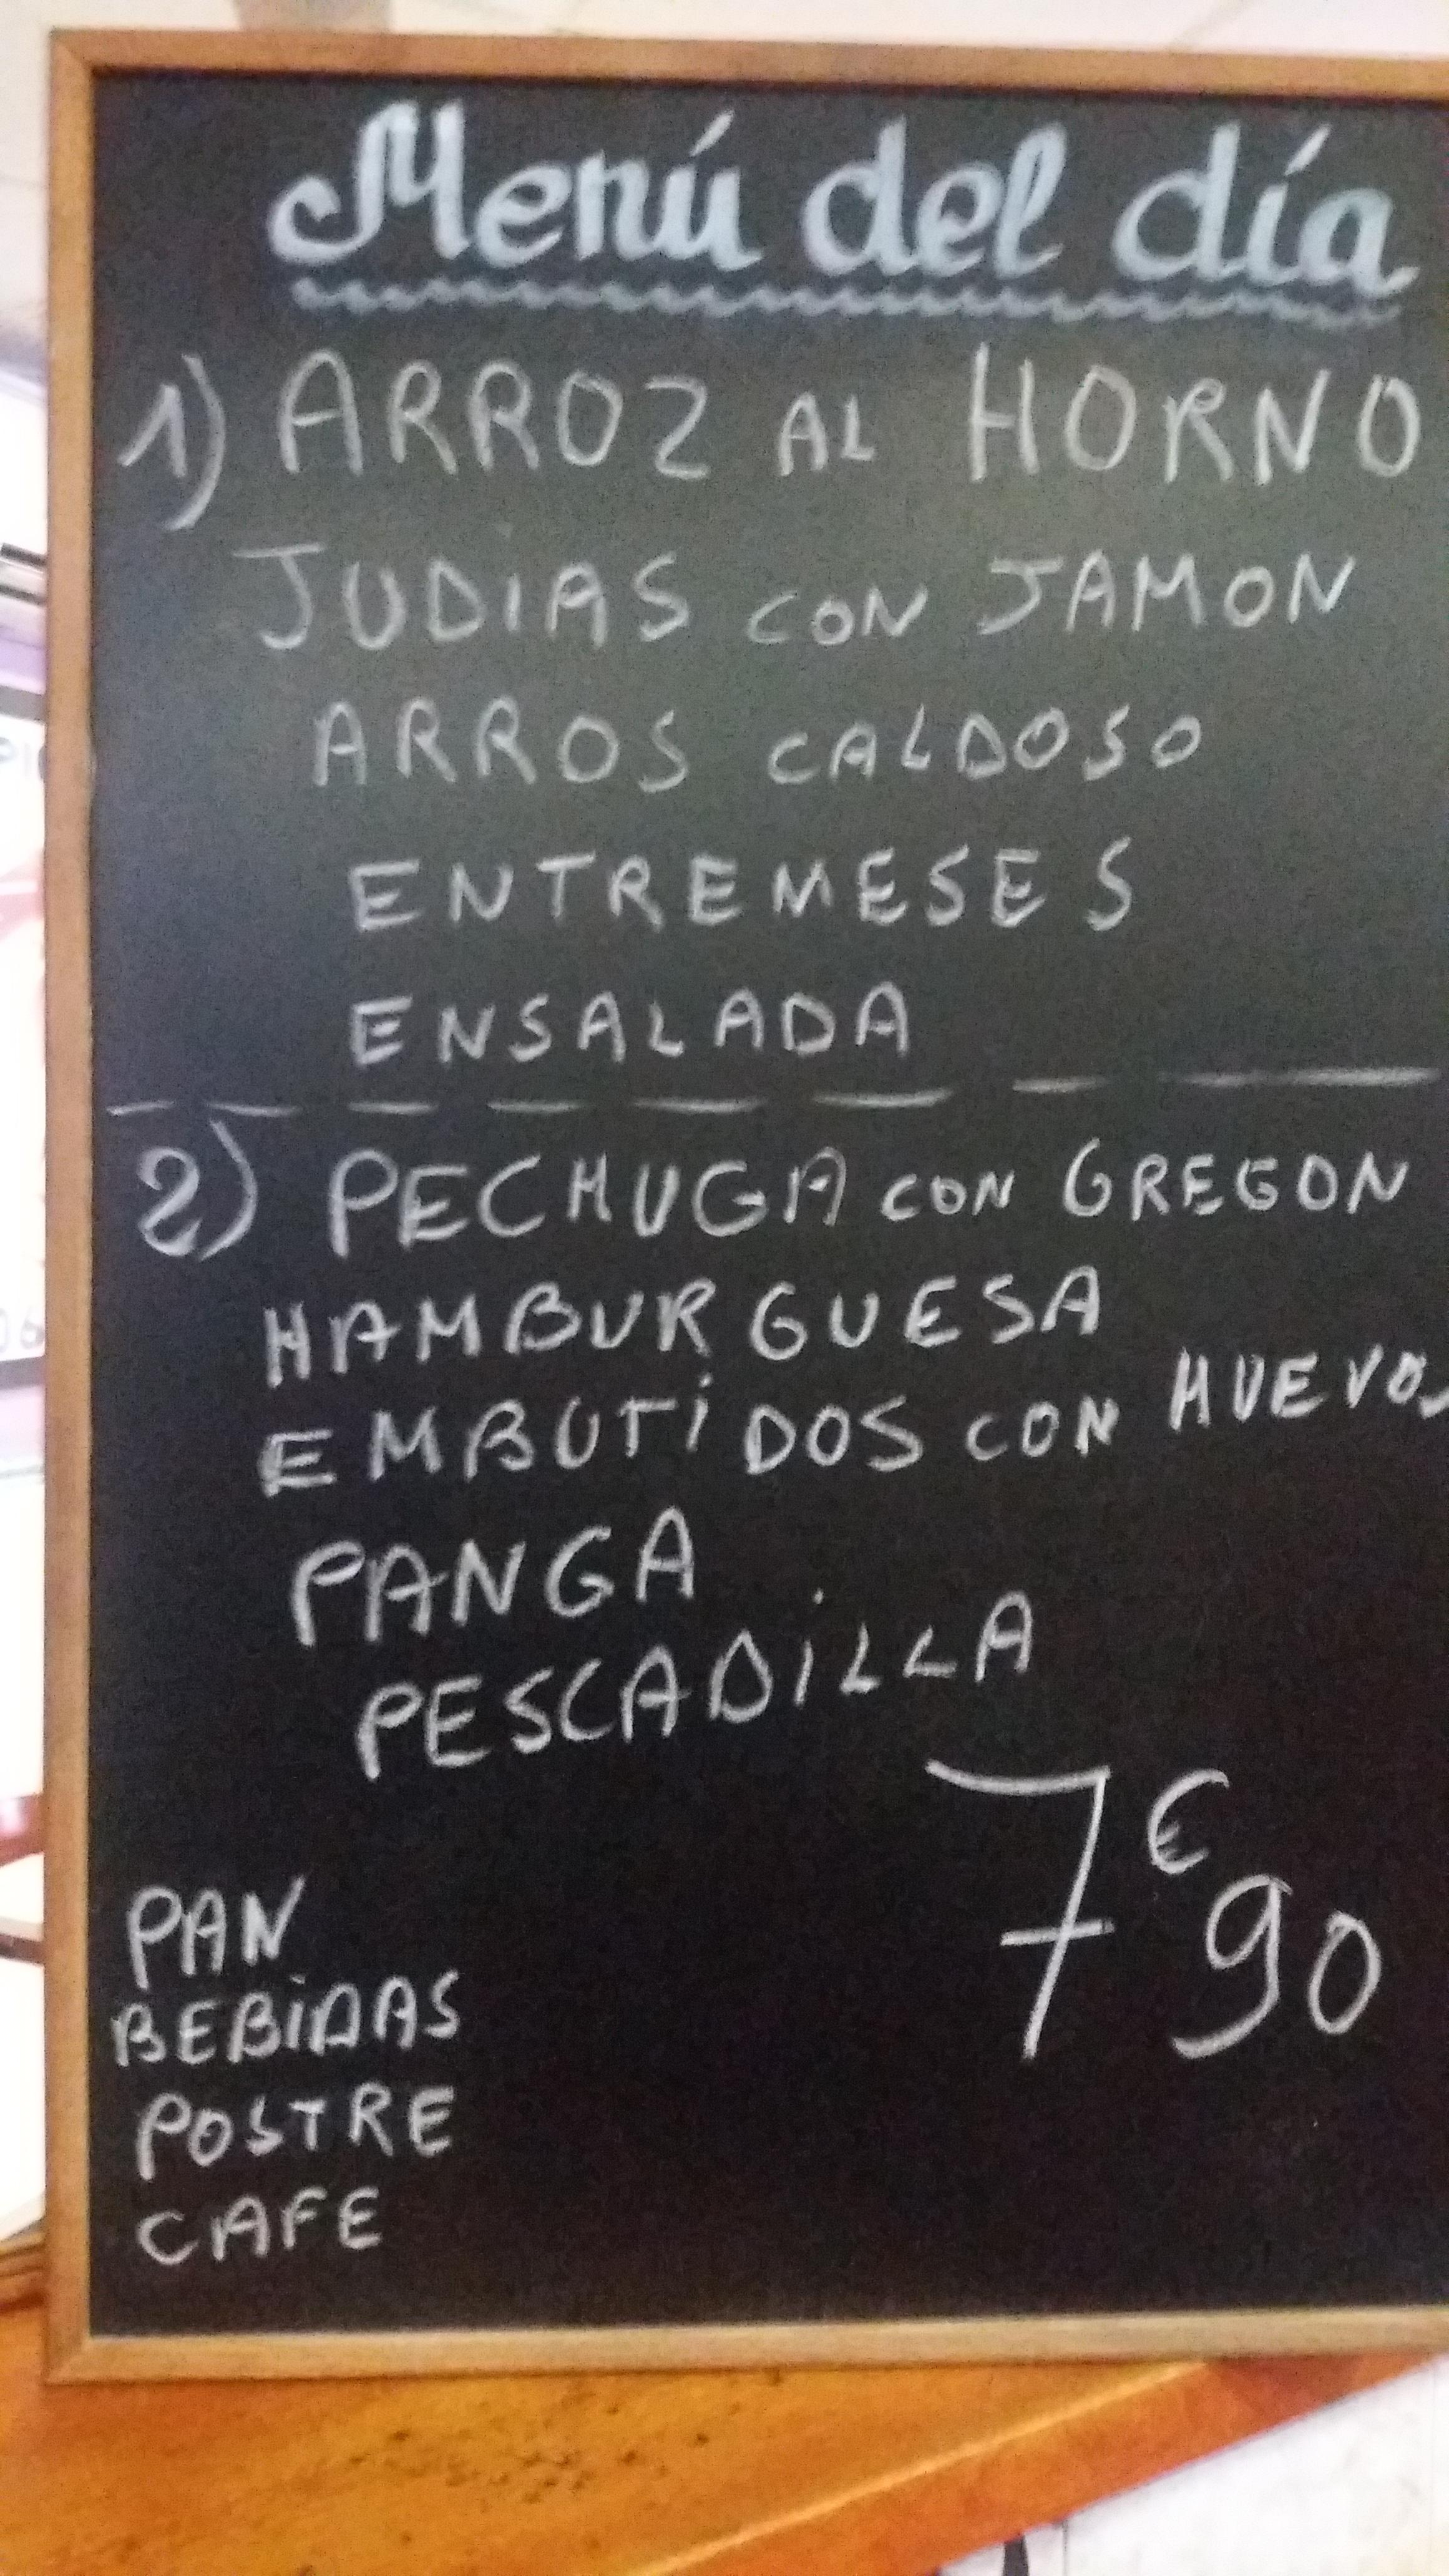 Menú del día
1) ARROZ AL HORNO
JUDIAS CON JAMON
ARROS CALDOSO
ENTREMESES
ENSALADA
2) PECHUGA CON GREGON
HAMBURGUESA
EMBUTIDOS CON HUEVOS
PANGA
PESCADILLA
7€90
PAN
BEBIDAS
POSTRE
CAFE